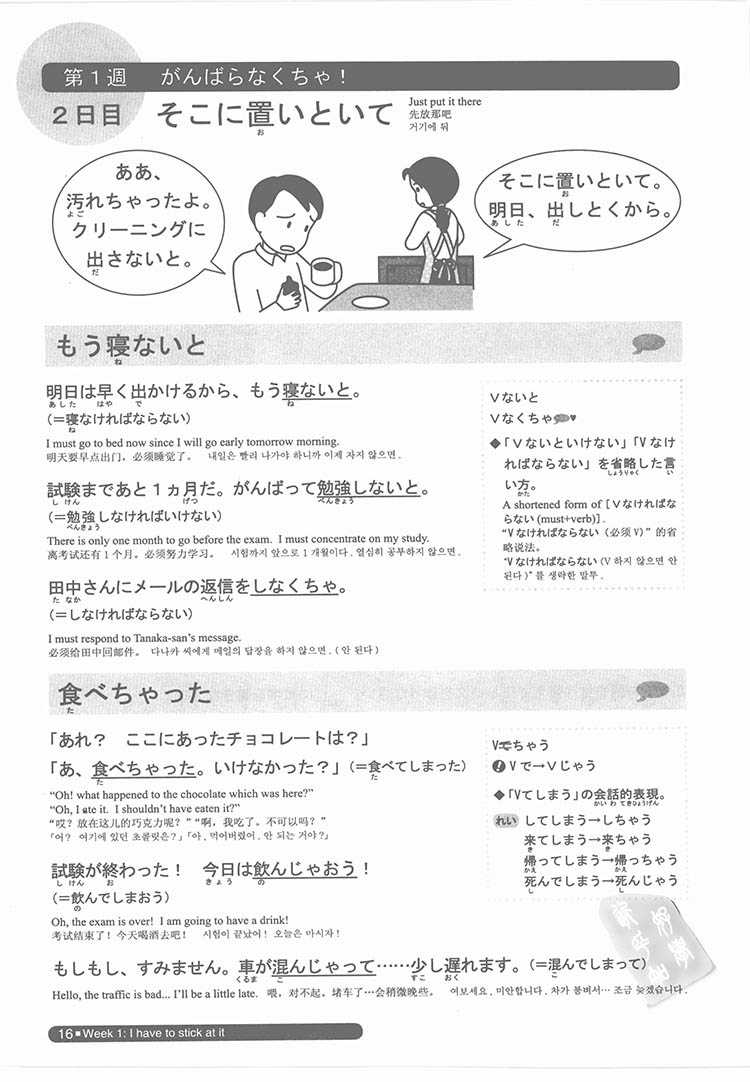 第1週 がんばらなくちゃ!
2日目 そこに置いといて
お
Just put it there
先放那吧
거기에 둬
ああ、
汚れちゃったよ。
よご
クリーニングに
出さないと。
だ
そこに置いといて。
お
明日、出しとくから。
あした だ
もう寝ないと
ね
明日は早く出かけるから、もう寝ないと。
あした はや で ね
(=寝なければならない)
ね
I must go to bed now since I will go early tomorrow morning.
明天要早点出门,必须睡觉了。 내일은 빨리 나가야 하니까 이제 자지 않으면.
試験まであと1ヵ月だ。がんばって勉強しないと。
しけん げつ べんきょう
(=勉強しなければいけない)
べんきょう
There is only one month to go before the exam. I must concentrate on my study.
离考试还有1个月。必须努力学习。 시험까지 앞으로 1개월이다. 열심히 공부하지 않으면.
田中さんにメールの返信をしなくちゃ。
たなか へんしん
(=しなければならない)
I must respond to Tanaka-san's message.
必须给田中回邮件。 다나카 씨에게 메일의 답장을 하지 않으면. (안 된다)
Vないと
Vなくちゃ ♥
◆「Vないといけない」「Vなけ
ればならない」を省略した言
しょうりゃく い
い方。
かた
A shortened form of [Vなければな
らない(must+verb)].
"Vなければならない(必须V)"的省
略说法。
"Vなければならない(V 하지 않으면 안
된다)"를 생략한 말투.
食べちゃった
た
「あれ? ここにあったチョコレートは?」
「あ、食べちゃった。いけなかった?」(=食べてしまった)
た た
"Oh! what happened to the chocolate which was here?"
"Oh, I ate it. I shouldn't have eaten it?"
"哎?放在这儿的巧克力呢?" "啊,我吃了。不可以吗?"
「어? 여기에 있던 초콜릿은?」「아, 먹어버렸어. 안 되는 거야?」
試験が終わった! 今日は飲んじゃおう!
しけん お きょう の
(=飲んでしまおう)
の
Oh, the exam is over! I am going to have a drink!
考试结束了!今天喝酒去吧! 시험이 끝났어! 오늘은 마시자!
もしもし、すみません。車が混んじゃって……少し遅れます。(=混んでしまって)
くるま こ すこ おく こ
Hello, the traffic is bad... I'll be a little late. 喂,对不起。堵车了…会稍微晚些。 여보세요. 미안합니다. 차가 붐벼서… 조금 늦겠습니다.
Vちゃう
! Vで→Vじゃう
◆「Vてしまう」の会話的表現。
かいわ てきひょうげん
れい してしまう→しちゃう
来てしまう→来ちゃう
き き
帰ってしまう→帰っちゃう
かえ かえ
死んでしまう→死んじゃう
し し
16■Week 1: I have to stick at it